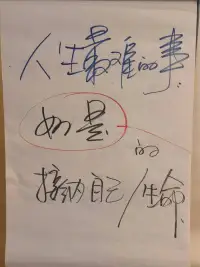 人生最难的事
如是
的
接纳自己/生命